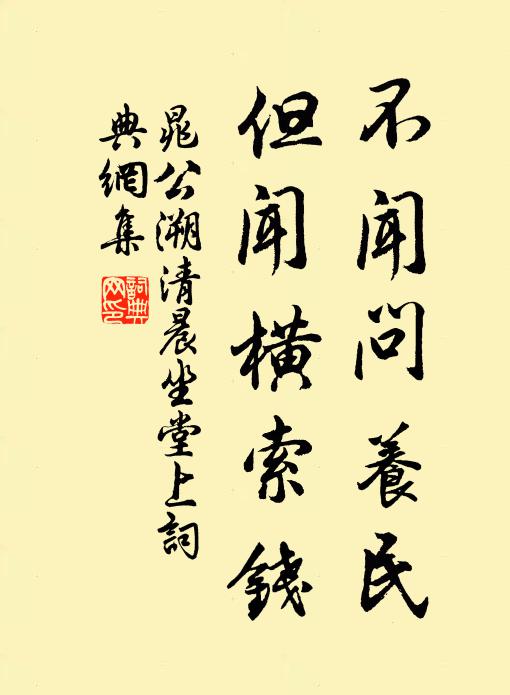 不聞問養民
但聞橫索錢
晁公溯清晨坐堂上詞
典網集
詞典網印